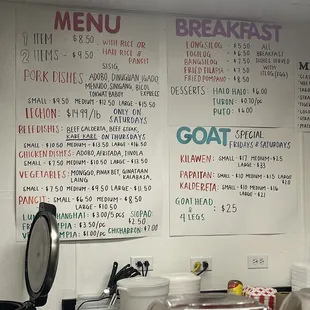 MENU
1 ITEM - $8.50 - WITH RICE OR
2 ITEMS - $9.50 HALF RICE &
PANCIT
SISIG,
PORK DISHES: ADOBO, DINUGUAN, IGADO
MENUDO, SINGANG, BICOL
TOKWAT BABOY EXPRESS
SMALL - $9.50 MEDIUM - $12.50 LARGE - $15.50
LECHON: $14.99/lb ONLY ON
SATURDAYS
BEEF DISHES: BEEF CALDERETA, BEEF STEAK,
KARE KARE ON THURSDAYS
SMALL - $10.50 MEDIUM - $13.50 LARGE - $16.50
CHICKEN DISHES: ADOBO, AFRITADA, TINOLA
SMALL - $7.50 MEDIUM - $10.50 LARGE - $13.50
VEGETABLES: MONGGO, PINAKBET, GINATAAN
KALABASA,
SMALL - $7.50 MEDIUM - $9.50 LARGE - $11.50
PANCIT: SMALL - $6.50 MEDIUM - $8.50
LARGE - $10.50
SHANGHAI: $3.00/5 PCS SIOPAO
$2.50
PIA: $3.00/PC CHICHARRON
$7.00
BREAKFAST
LONGSILOG - $7.50
TOCILOG - $6.50
BANGSILOG - $7.50
FRIED TILAPIA - $7.50
FRIED POMPANO - $8.50
ALL
BREAKFAST
DISHES
SERVED WITH
ITLOG (EGG)
DESSERTS HALO HALO: $6.00
TURON: $0.70/pc
PUTO: $6.00
GOAT SPECIAL
FRIDAYS & SATURDAYS
KILAWEN: SMALL - $17 MEDIUM - $25
LARGE - $33
PAPAITAN: SMALL - $10 MEDIUM - $15
KALDERETA: SMALL - $10 MEDIUM - $16
LARGE - $21
GOAT HEAD
&
4 LEGS : $25